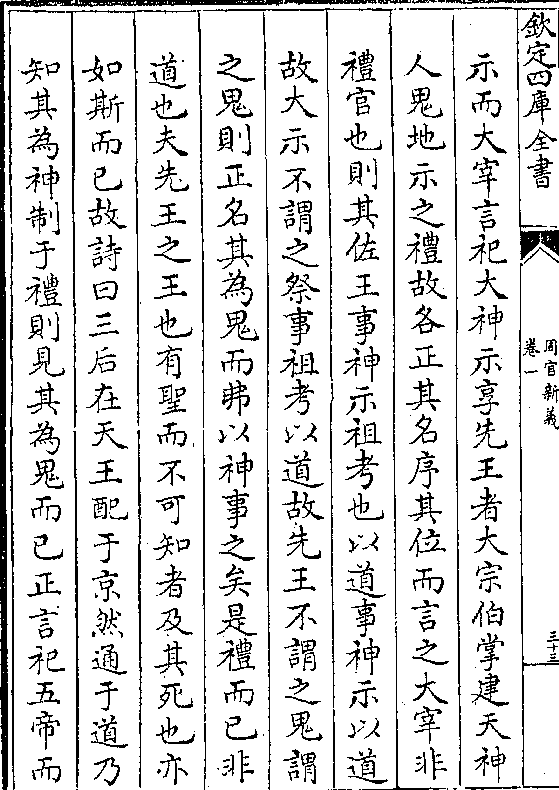 欽定四庫全書
周官新義
卷一
三十三
示而大宰言祀大神示享先王者大宗伯掌建天神
人鬼地示之禮故各正其名序其位而言之大宰非
禮官也則其佐王事神示祖考也以道事神示以道
故大示不謂之祭事祖考以道故先王不謂之鬼謂
之鬼則正名其為鬼而弗以神事之矣是禮而已非
道也夫先王之王也有聖而不可知者及其死也亦
如斯而已故詩曰三后在天王配于京然通于道乃
知其為神制于禮則見其為鬼而已正言祀五帝而